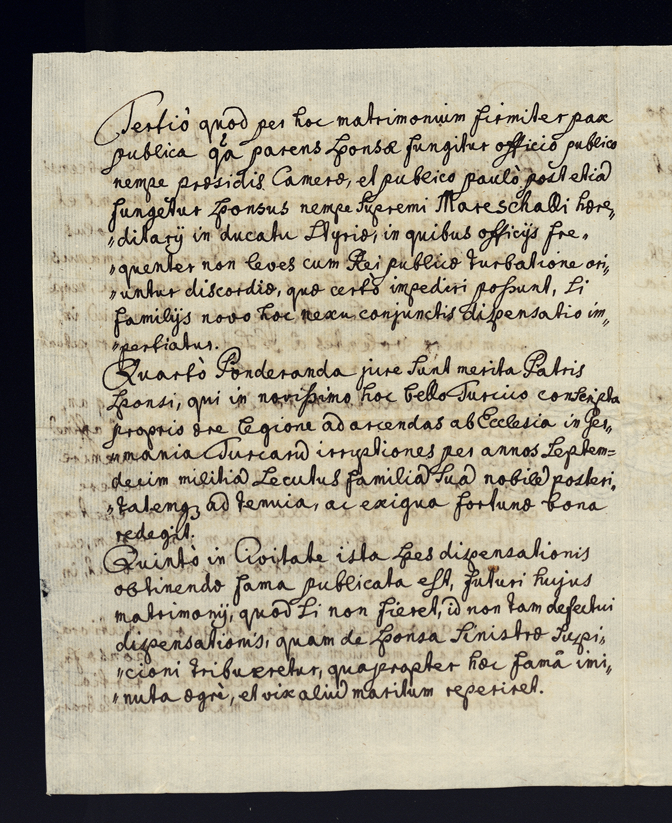 Tertiò quod per hoc matrimonium firmiter pax
publica qa parens sponsæ fungitur officio publico
nempe præsidis Cameræ, et publico paulò post etiā
fungetur sponsus nempe supremi Mareschalli hære„
„ditarij in ducatu Styriæ, in quibus officijs fre„
„quenter non leves cum Rei publicæ turbatione ori„
„untur discordiæ, quæ certò impediri possunt, si
familijs novo hoc nexu conjunctis dispensatio im„
„pertiatur.
Quartò Ponderanda jure sunt merita Patris
sponsi, qui in novissimo hoc bello Turcico conscripta
proprio ære legione ad arcendas ab Ecclesia in Ger„
„mania Turcarū irruptiones per annos septem=
decim militiā secutus familiā suā nobilē posteri„
„tatemq3 ad tenuia, ac exigua fortunæ bona
redegit.
Quintò in Civitate ista spes dispensationis
obtinendæ fama publicata est, futuri hujus
matrimonij, quod si non fieret, id non tam defectui
dispensationis, quam de sponsa sinistræ suspi„
„cioni tribueretur, quapropter hæc famâ imi„
„nuta ægrè, et vix aliū maritum reperiret.